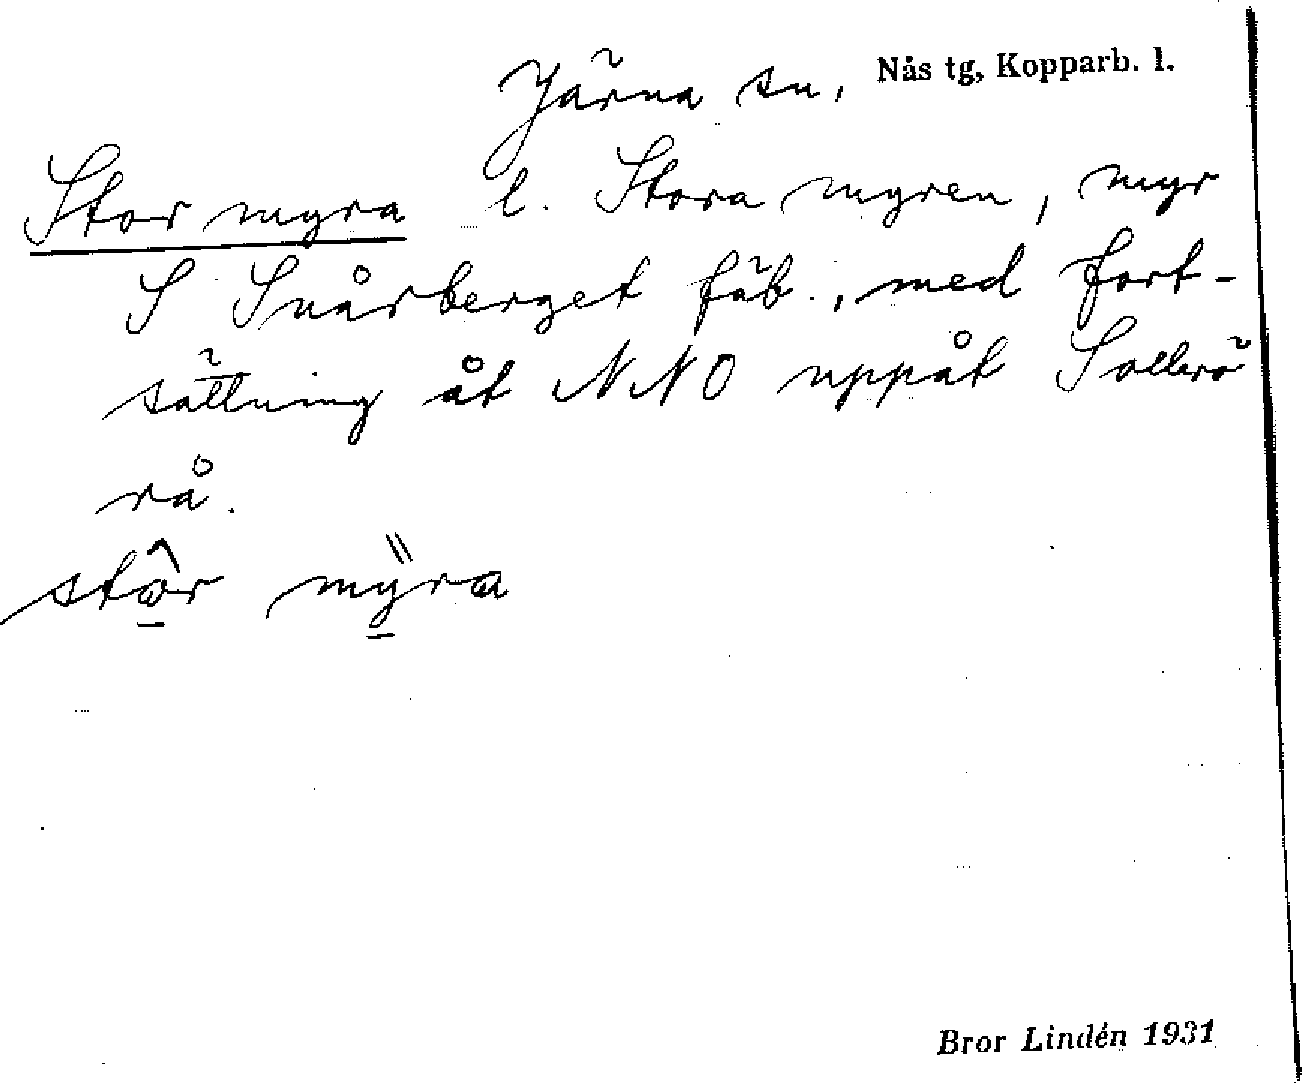 Järna sn, Nås tg, Kopparb. l.
Stor myra l. Stora myren, myr
S Snårberget fäb., med fort-
sättning åt NNO uppåt Sollerö
rå.
stôr mÿra
Bror Lindén 1931